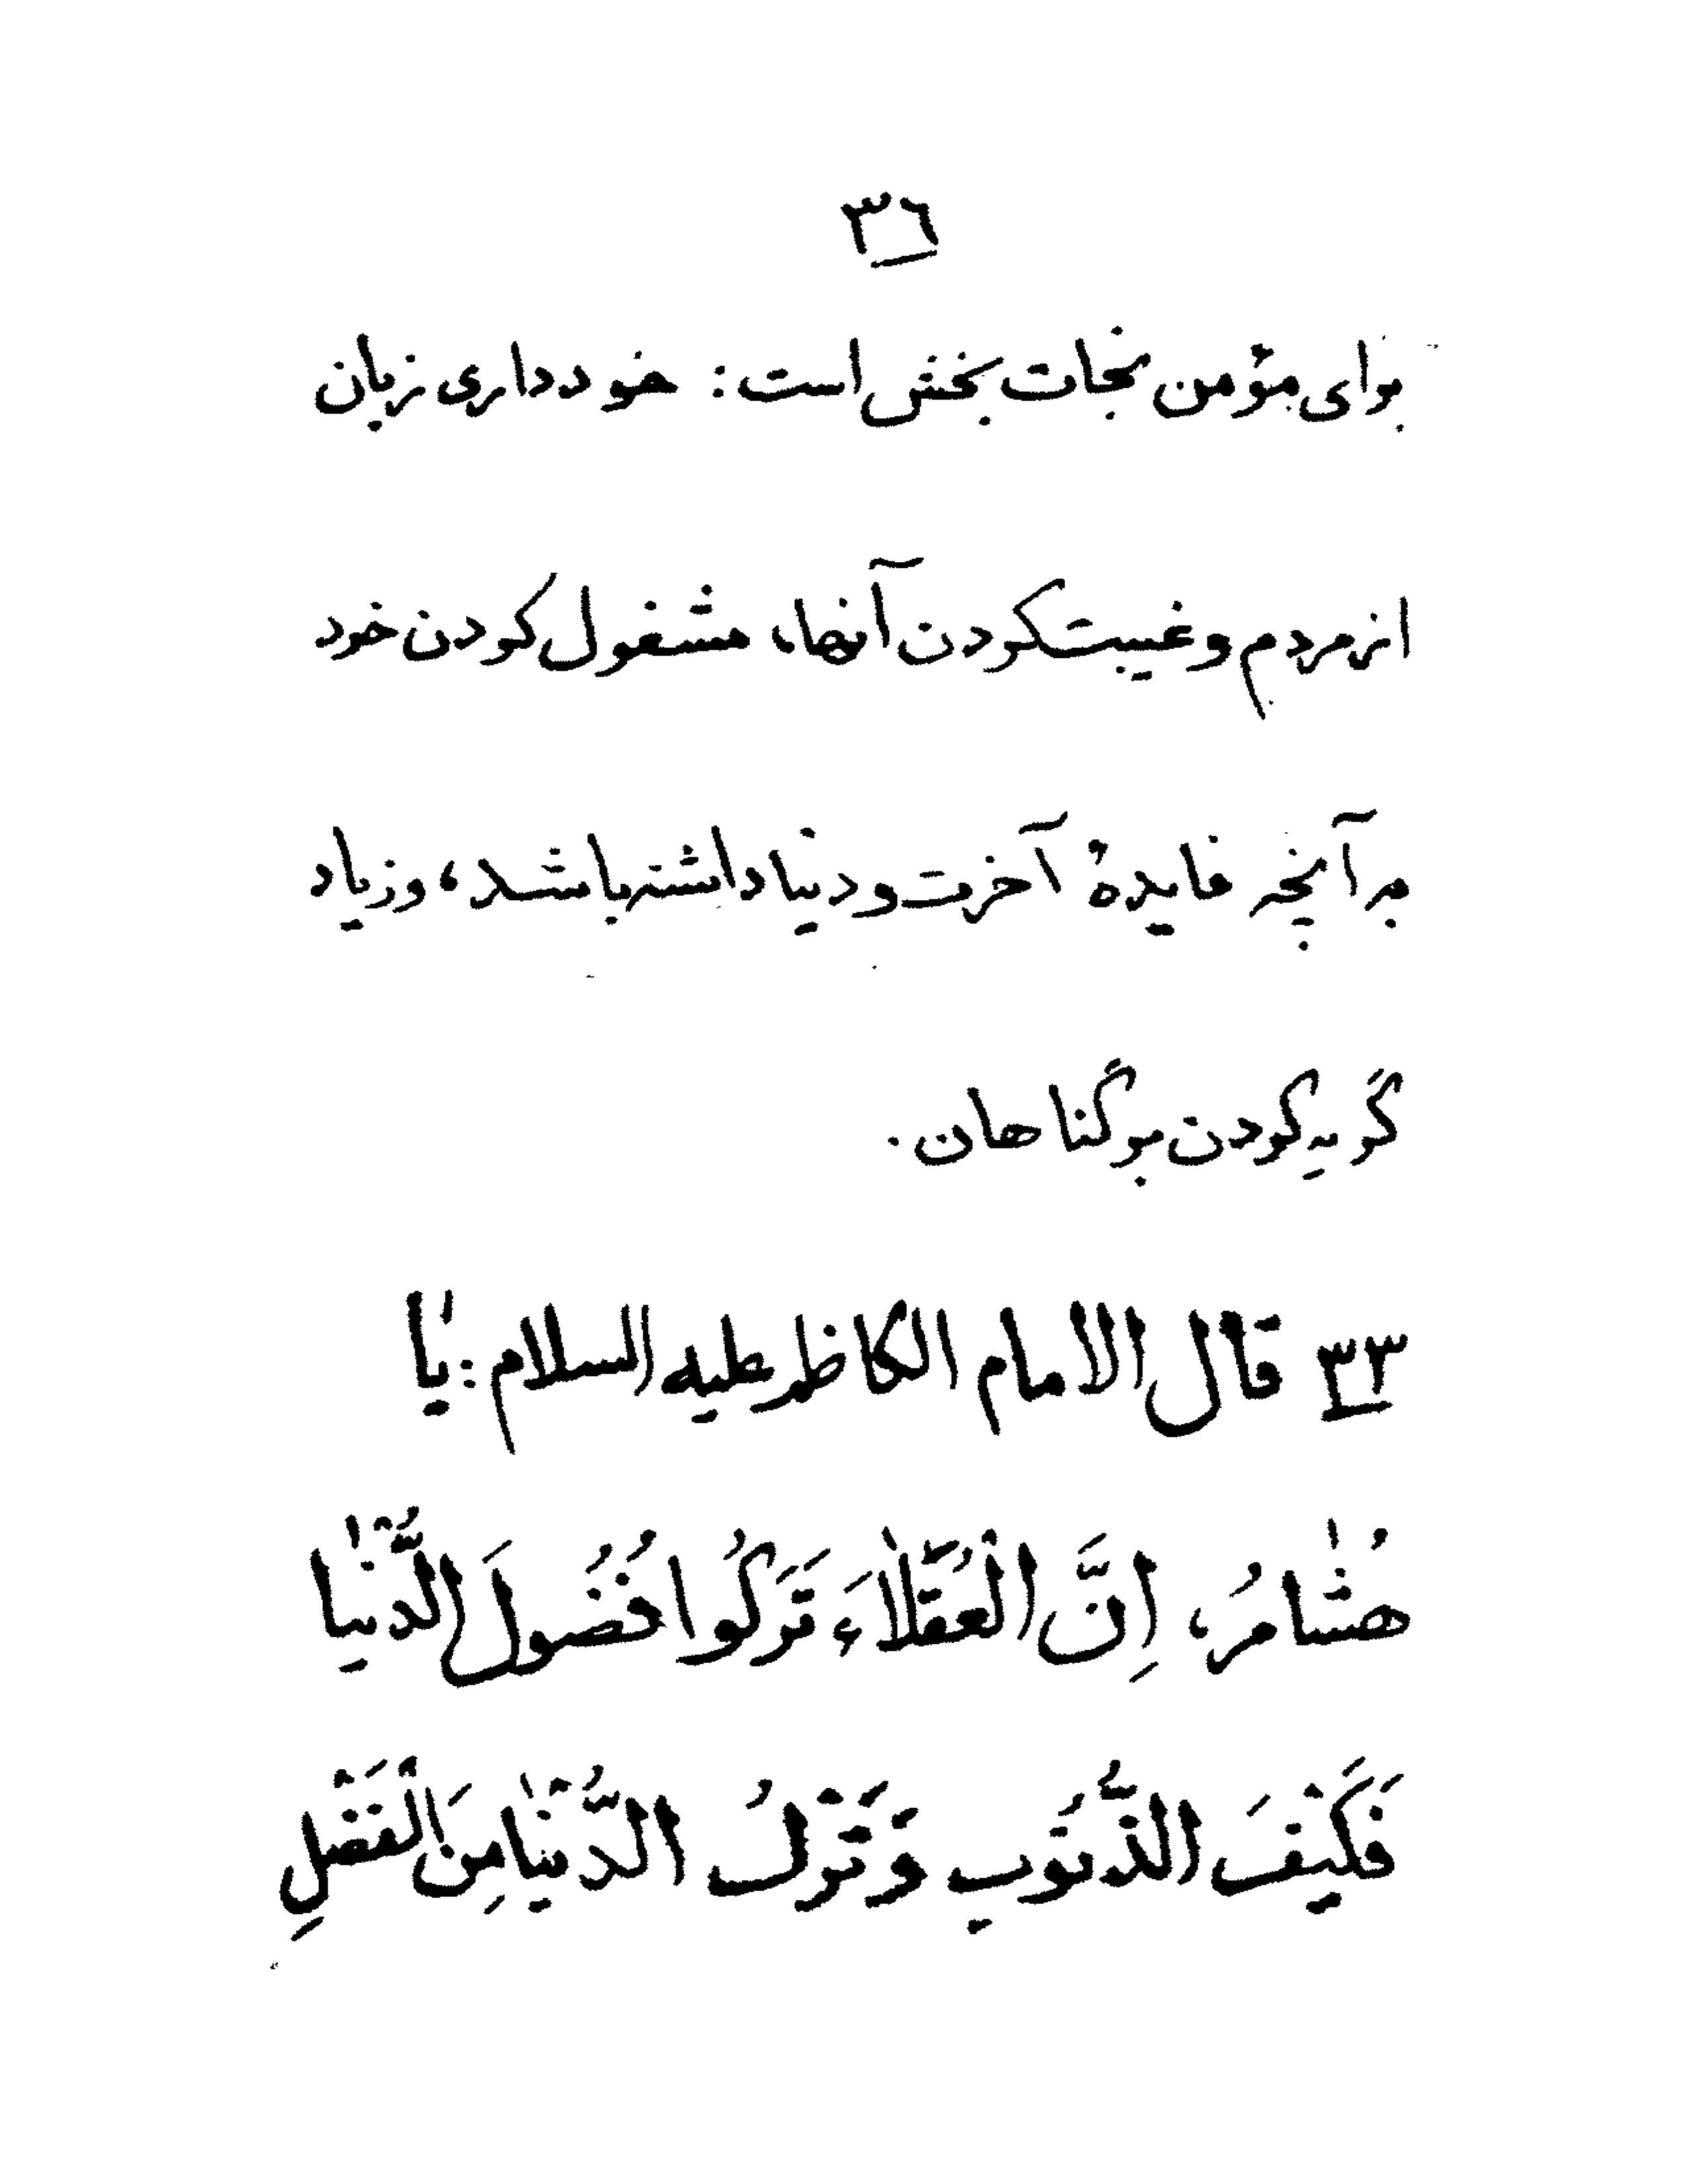 ٣٦
برای مؤمن نجات بخش است: خودداری زبان
از مردم و غیبت کردن آنها، مشغول کردن خود
به آنچه فایدهٔ آخرت و دنیا داشته باشد، و زیاد
گریه کردن بر گناهان.
٣٣ قال الامام الكاظم عليه السلام: يٰا
هُشٰامُ، اِنَّ الْعُقَلٰاءَ تَرَكُوا فُضُولَ الدُّنْيٰا
فَكَيْفَ الذُّنُوبِ وَ تَرْكُ الدُّنْيٰا مِنَ الْفَضْلِ